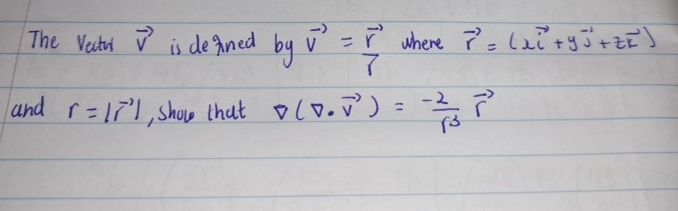 The Vector v⃗ is defined by v⃗ = r⃗/r where r⃗ = (xi⃗ + yj⃗ + zk⃗)
and r = |r⃗|, show that ∇(∇·v⃗) = -2/r³ r⃗